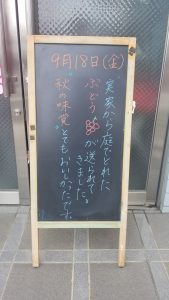 9月18日(金)
実家から庭でとれた
ぶどうが送られて
きました。
"秋の味覚"とてもおいしかったです。